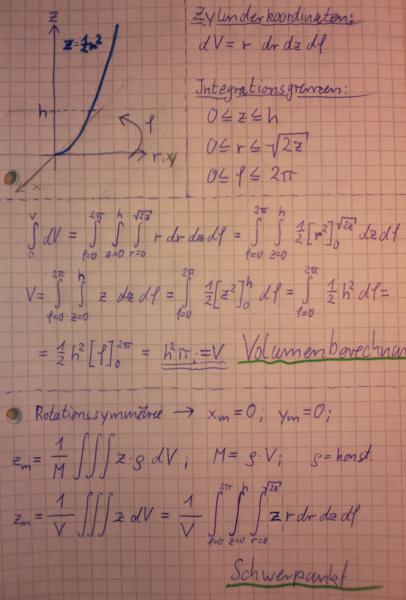 z
z=½r²
h
φ
r, y
x
Zylinderkoordinaten:
dV = r dr dz dφ
Integrationsgrenzen:
0 ≤ z ≤ h
0 ≤ r ≤ √2z
0 ≤ φ ≤ 2π
∫₀^V dV = ∫_{φ=0}^{2π} ∫_{z=0}^{h} ∫_{r=0}^{√2z} r dr dz dφ = ∫_{φ=0}^{2π} ∫_{z=0}^{h} ½[r²]₀^{√2z} dz dφ
V = ∫_{φ=0}^{2π} ∫_{z=0}^{h} z dz dφ = ∫_{φ=0}^{2π} ½[z²]₀^h dφ = ∫_{φ=0}^{2π} ½h² dφ =
= ½h²[φ]₀^{2π} = h²π = V Volumenberechnun
Rotationssymmetrie → x_m = 0; y_m = 0;
z_m = 1/M ∫∫∫ z·ρ dV; M = ρ·V; ρ = konst.
z_m = 1/V ∫∫∫ z dV = 1/V ∫_{φ=0}^{2π} ∫_{z=0}^{h} ∫_{r=0}^{√2z} z r dr dz dφ
Schwerpunkt